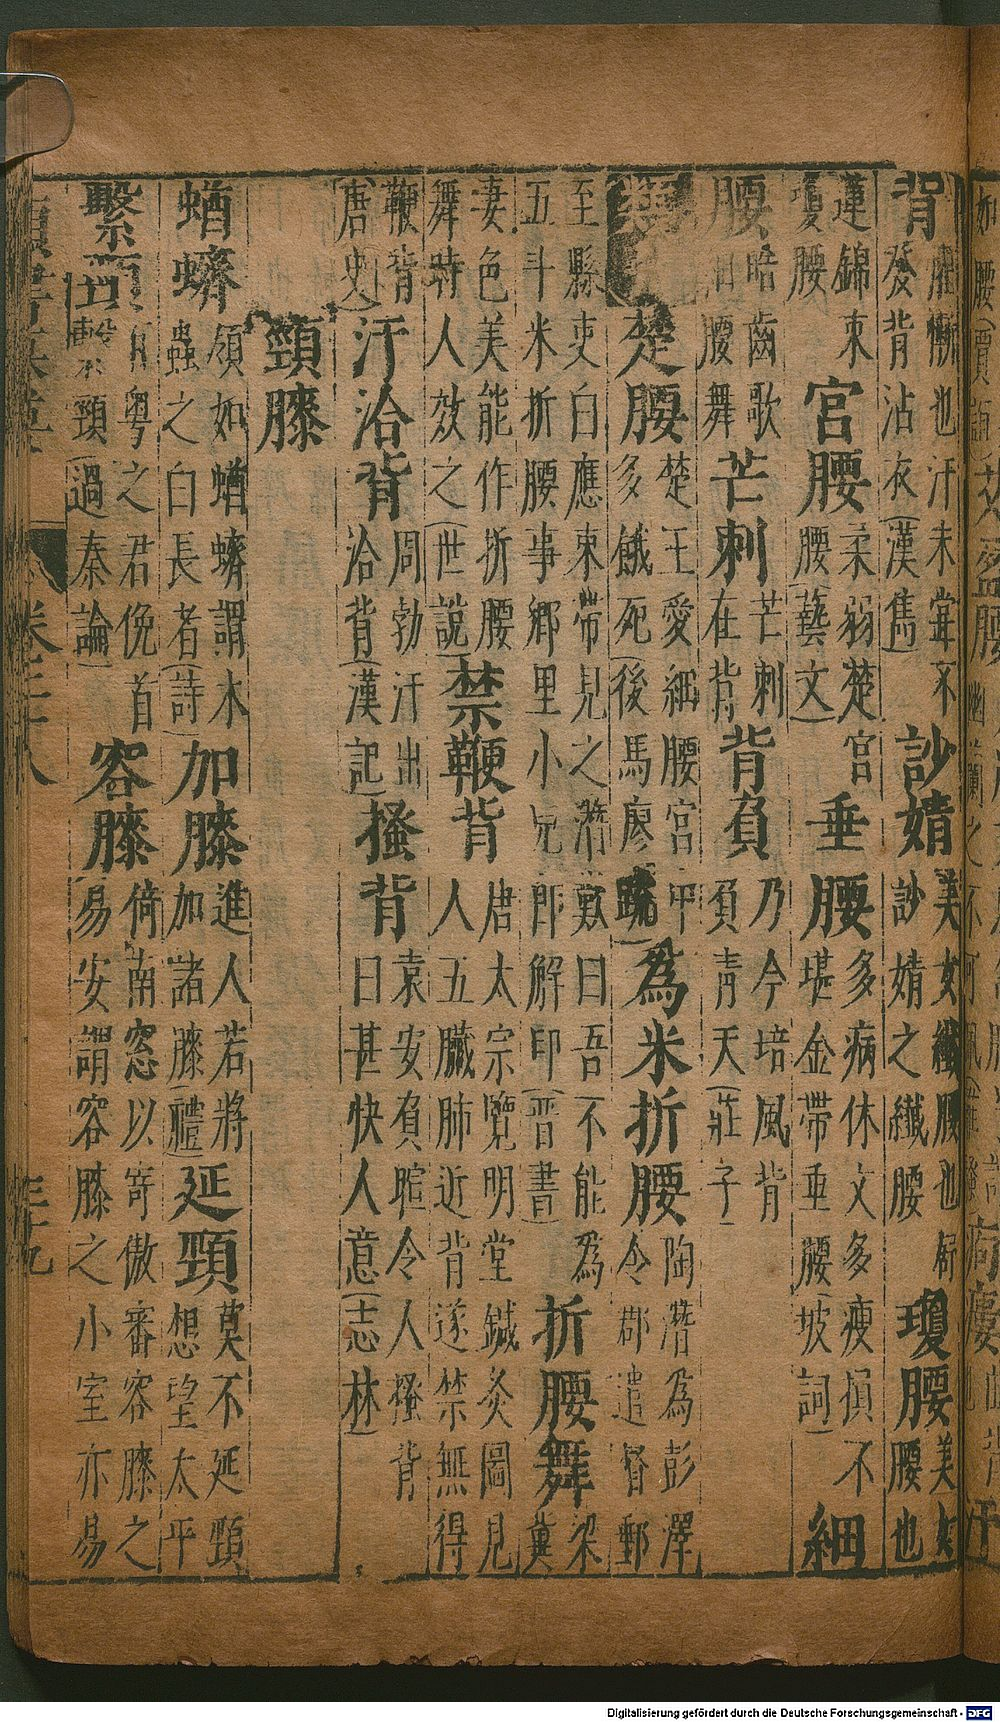 背 脽慚也汗未嘗不發背沾衣(漢雋) 䚳婧 美女纖腰也舒䚳婧之纖腰 瓊腰 腰美女腰也
蓮錦束瓊腰 宮腰 柔弱楚宮腰(藝文) 垂腰 多病休文多瘦損不堪金帶垂腰(坡詞) 細
腰 皓齒歌細腰舞 芒刺 芒刺在背 背負 乃今培風背負青天(莊子)
楚腰 楚王愛細腰宮中多餓死(後馬廖疏) 為米折腰 陶潛為彭澤令郡遣督郵
至縣吏白應束帶見之潛歎曰吾不能為五斗米折腰事鄉里小兒即解印(晋書) 折腰舞 梁冀
妻色美能作折腰舞時人效之(世說) 禁鞭背 唐太宗覽明堂鍼灸圖見人五臟肺近背遂禁無得
鞭背(唐史) 汗洽背 周勃汗出洽背(漢記) 搔背 袁安負暄令人搔背曰甚快人意(志林)
頸膝
蝤蠐 領如蝤蠐謂木蟲之白長者(詩) 加膝 進人若將加諸膝(禮) 延頸 莫不延頸想望太平
繫頸 百粤之君俛首繫頸(過秦論) 容膝 倚南窓以寄傲審容膝之易安謂容膝之小室亦易
卷三十八
Digitalisierung gefördert durch die Deutsche Forschungsgemeinschaft - DFG